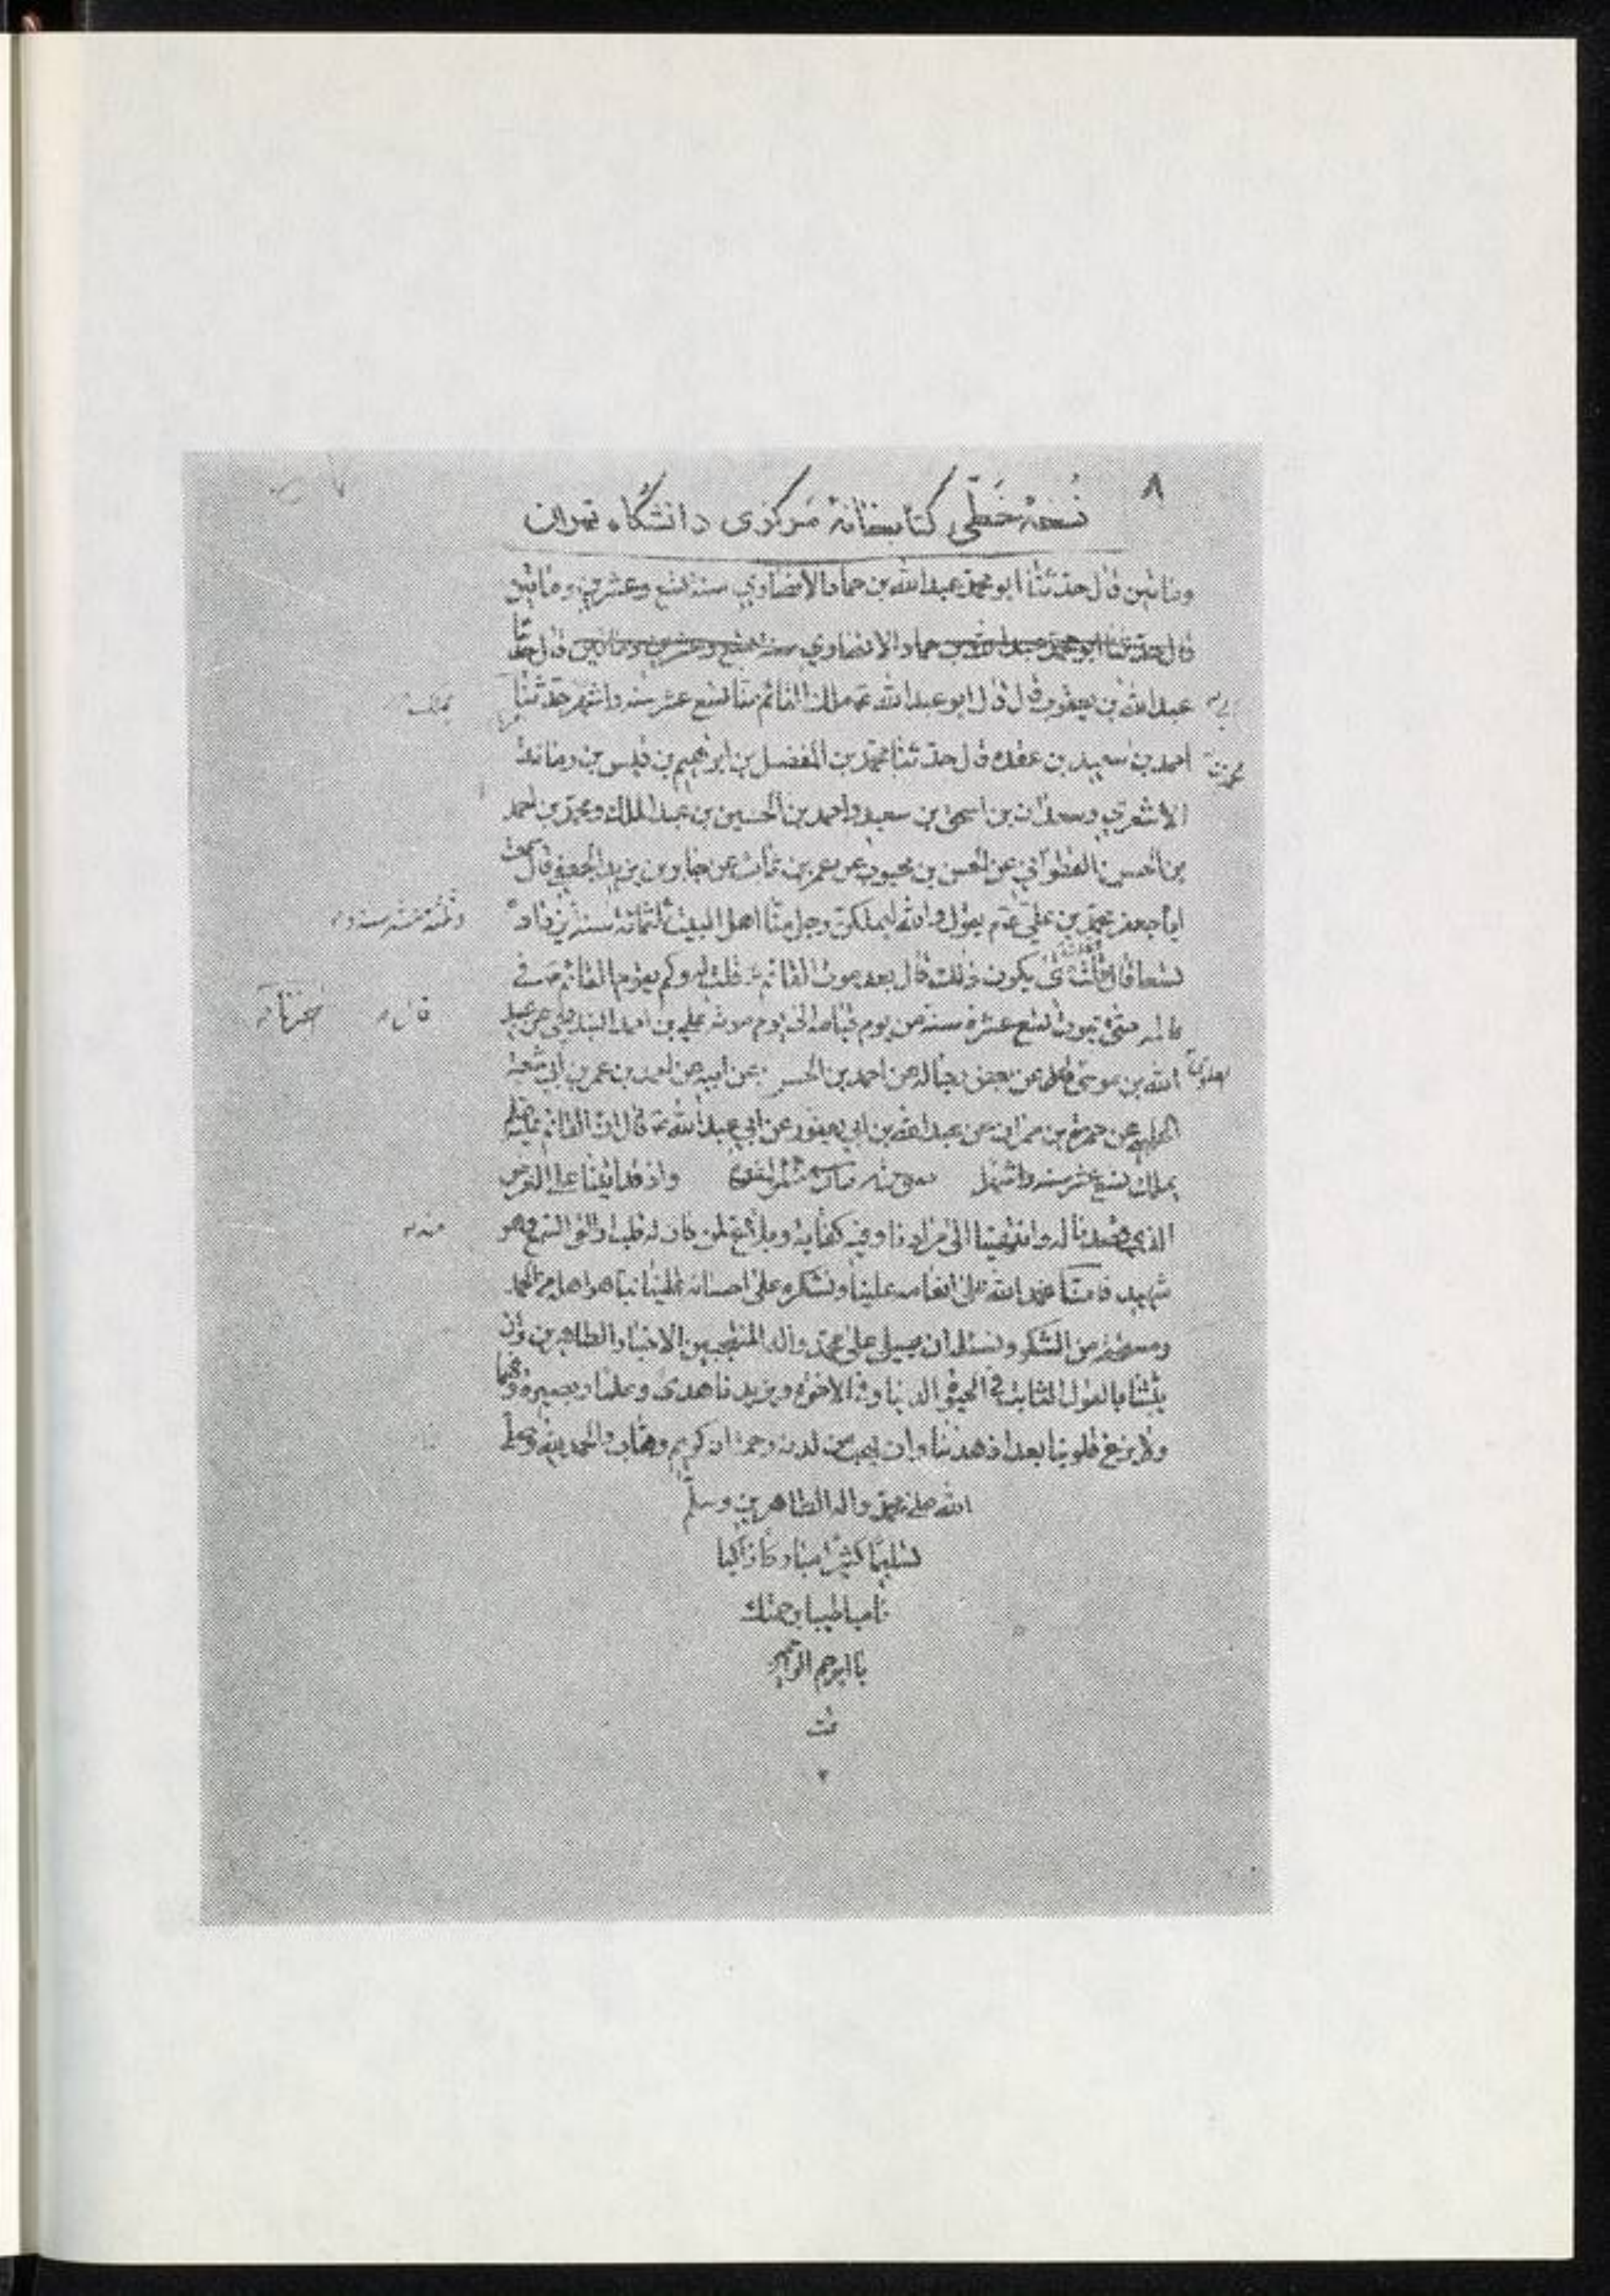 ٨
نُسخهٔ خَطّی کتابخانهٔ مَرکزی دانشگاه تهران
ومائتين قال حدثنا ابو محمد عبدالله بن حماد الانصاري سنة تسع وعشرين ومائتين
قال حدثنا ابو محمد عبدالله بن حماد الانصاري سنة تسع وعشرين ومائتين قال حدثنا
عبدالله بن يعفور قال قال ابو عبدالله يملك القائم منا تسع عشر سنه واشهر حدثنا
احمد بن سعيد بن عقده قال حدثنا محمد بن المفضل بن ابرهيم بن قيس بن رمانة
الاشعري وسعدان بن اسحق بن سعيد واحمد بن الحسين بن عبد الملك ومحمد بن احمد
بن الحسن القطواني عن الحسن بن محبوب عن عمر بن ثابت عن جابر بن يزيد الجعفي قال سمعت
ابا جعفر محمد بن علي يقول والله ليملكن رجل منا اهل البيت ثلثمائة سنة يزداد
وثلثة عشر سنه و
تسعا قال قلت متى يكون ذلك قال بعد موت القائم قلت له وكم يقوم القائم في
عالمه حتى يموت تسع عشرة سنة من يوم قيامه الى يوم موته علي بن احمد البندنيجي عن عبيد
قال
اخبرنا
الله بن موسى عن بعض رجاله عن احمد بن الحسن عن ابيه عن احمد بن عمر بن ابي شعبة
العلوي
الحلبي عن حمزة بن حمران عن عبدالله بن ابي يعفور عن ابي عبدالله قال ان القائم
يملك تسع عشر سنه واشهرا واذ قد اتينا على الغرض
الذي قصدنا له وانتهينا الى مرادنا وفيه كفاية وبلاغ لمن كان له قلب او القى السمع وهو
منه
شهيد فانا نحمد الله على انعامه علينا ونشكره على احسانه الينا بما هو اهله من الحمد
ومستحقه من الشكر ونسئله ان يصلي على محمد واله المنتجبين الاخيار الطاهرين وان
يثبتنا بالقول الثابت في الحيوة الدنيا وفي الاخرة ويزيدنا هدى وعلما وبصيرة وفهما
ولا يزغ قلوبنا بعد اذ هدينا وان يهب من لدنه رحمة انه كريم وهاب والحمد لله وصلى
الله على محمد واله الطاهرين وسلم
تسليما كثيرا زاكيا
ناميا طيبا برحمتك
يا ارحم الراحمين
تمت